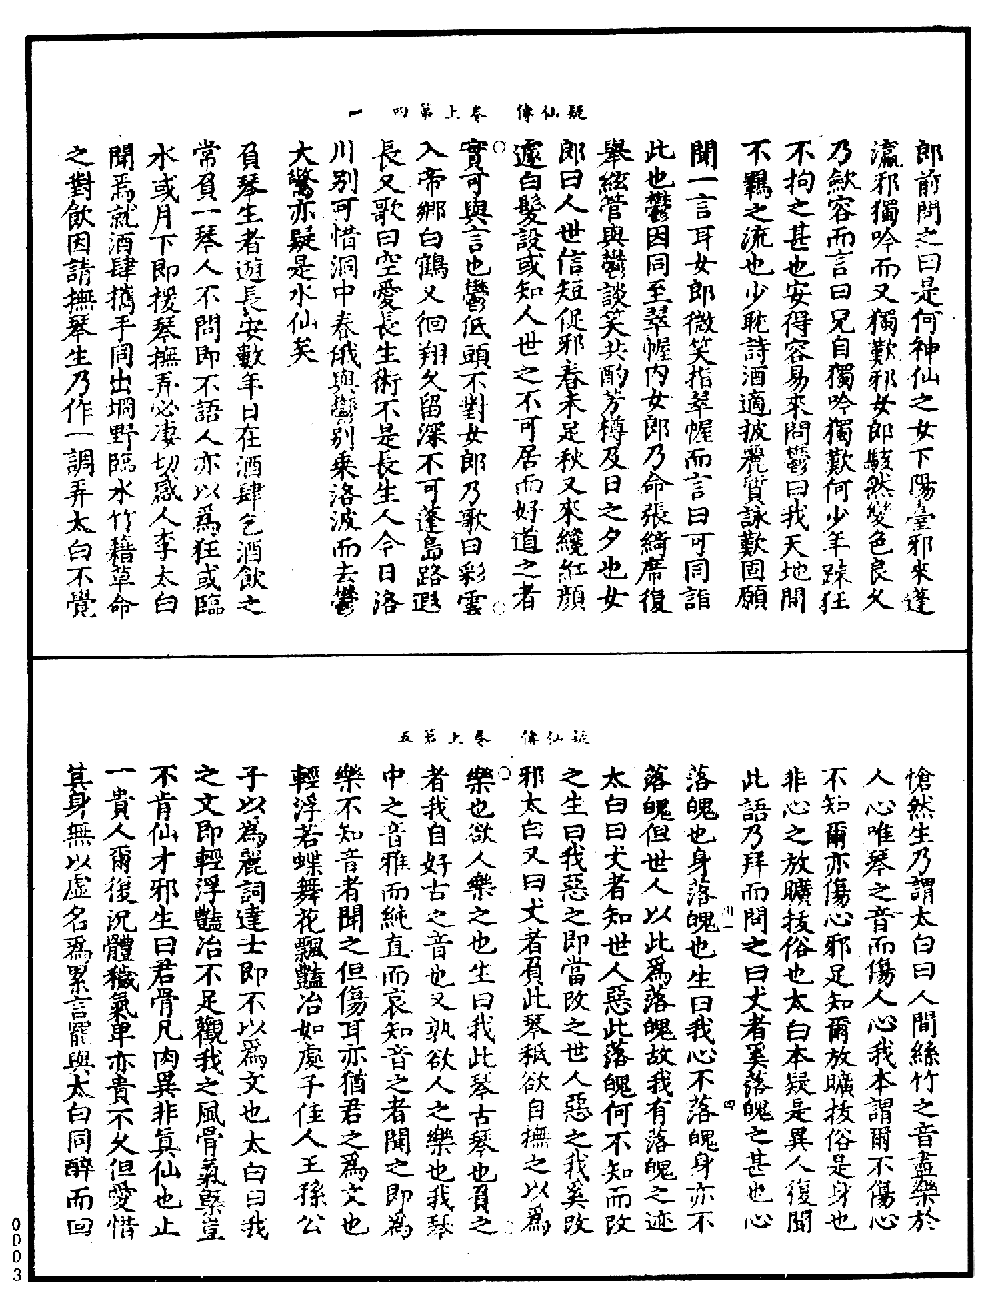 疑仙傳　卷上第四　一
郎前問之曰是何神仙之女下陽臺邪來蓬
瀛邪獨吟而又獨歎邪女郎駭然變色良久
乃歛容而言曰兄自獨吟獨歎何少年踈狂
不拘之甚也安得容易來問鬱曰我天地間
不羈之流也少耽詩酒適披麗質詠歎固願
聞一言耳女郎微笑指翠幄而言曰可同詣
此也鬱因同至翠幄內女郎乃命張綺席復
舉絃管與鬱談笑共酌芳樽及日之夕也女
郎曰人世信短促邪春未足秋又來纔紅顏
遽白髮設或知人世之不可居而好道之者
實可與言也鬱低頭不對女郎乃歌曰彩雲
入帝鄉白鶴又徊翔久留深不可蓬島路遐
長又歌曰空愛長生術不是長生人今日洛
川別可惜洞中春俄與鬱別乘洛波而去鬱
大驚亦疑是水仙矣
負琴生者遊長安數年日在酒肆乞酒飲之
常負一琴人不問即不語人亦以爲狂或臨
水或月下即援琴撫弄必凄切感人李太白
聞焉就酒肆攜手同出埛野臨水竹藉草命
之對飲因請撫琴生乃作一調弄太白不覺
疑仙傳　卷上第五
愴然生乃謂太白曰人間絲竹之音盡樂於
人心唯琴之音而傷人心我本謂爾不傷心
不知爾亦傷心邪足知爾放曠拔俗是身也
非心之放曠拔俗也太白本疑是異人復聞
此語乃拜而問之曰丈者奚落魄之甚也心
落魄也身落魄也生曰我心不落魄身亦不
落魄但世人以此爲落魄故我有落魄之迹
太白曰丈者知世人惡此落魄何不知而改
之生曰我惡之即當改之世人惡之我奚改
邪太白又曰丈者負此琴秖欲自撫之以爲
樂也欲人樂之也生曰我此琴古琴也負之
者我自好古之音也又孰欲人之樂也我琴
中之音雅而純直而哀知音之者聞之即爲
樂不知音者聞之但傷耳亦猶君之爲文也
輕浮若蝶舞花飄豔冶如處子佳人王孫公
子以爲麗詞達士即不以爲文也太白曰我
之文即輕浮豔冶不足觀我之風骨氣槩豈
不肯仙才邪生曰君骨凡肉異非眞仙也止
一貴人爾復況體穢氣卑亦貴不久但愛惜
其身無以虛名爲累言罷與太白同醉而回
0003